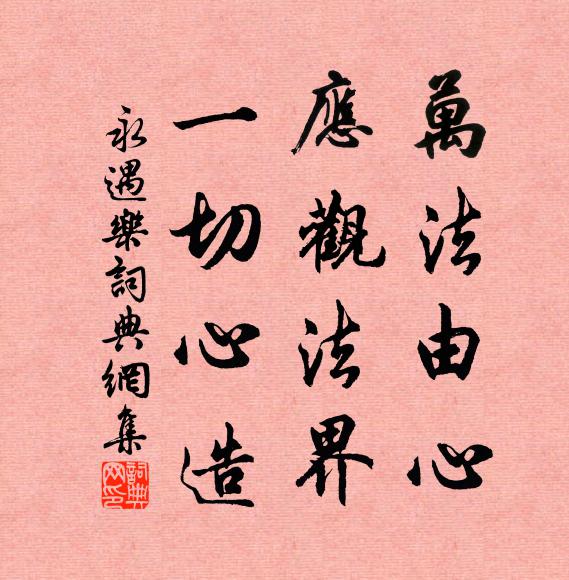 萬法由心
應觀法界
一切心造
永遇樂詞典網集
詞典
网印